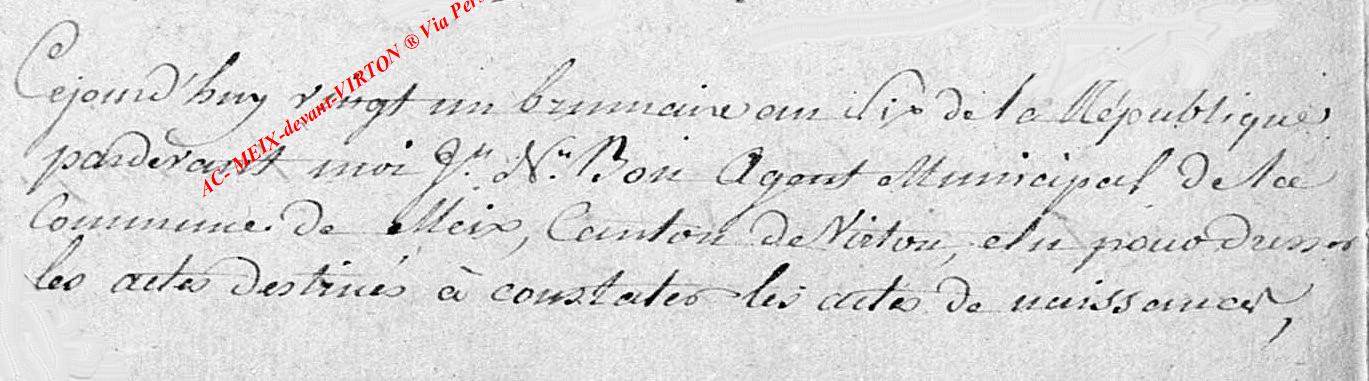 AC-MEIX-devant-VIRTON ® Via Pers
Cejourd'huy vingt un brumaire an Six de la République
pardevant moi Jn. Ns. Bon Agent Municipal de la
Commune de Meix, Canton de Virton, elu pour dresser
les actes destinés à constater les actes de naissances,